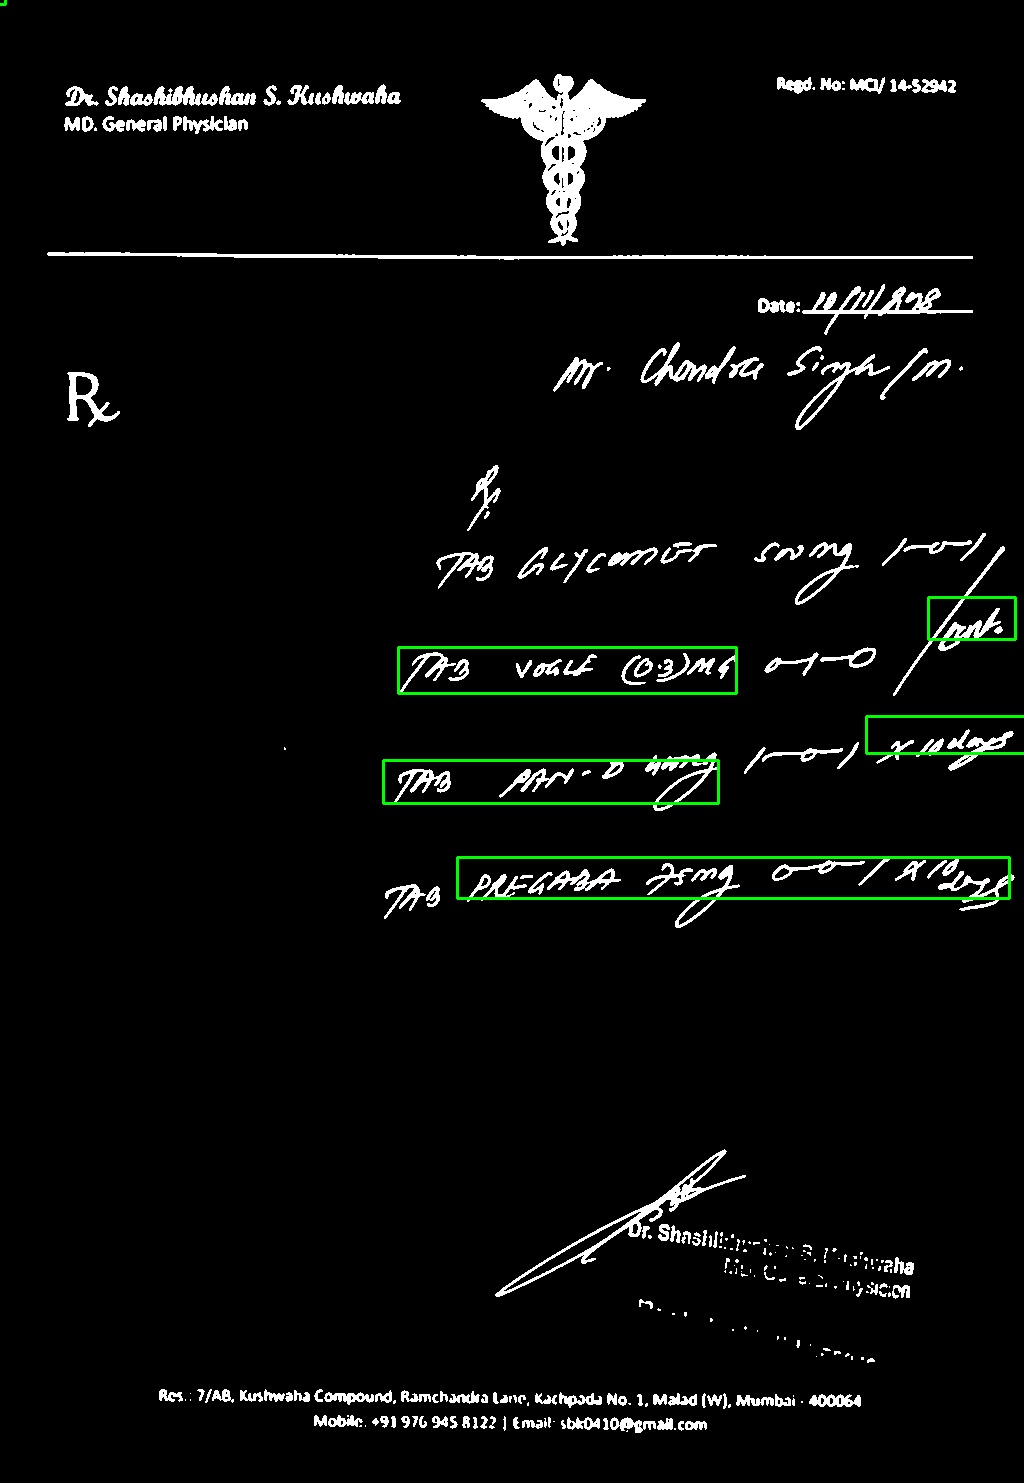 Dr. Shashibhushan S. Kushwaha
MD. General Physician
Regd. No: MCI/ 14-52942
Date: 10/11/2018
Mr. Chandra Singh / M.
Rx
Rx
TAB GLYCOMET 500mg 1-0-1
cont.
TAB VOGLE (0.3)MG 0-1-0
TAB PAN-D 40mg 1-0-1 x 10 days
TAB PREGABA 75mg 0-0-1 x 10 days
Dr. Shashibhushan S. Kushwaha
MD. General Physician
Res.: 7/AB, Kushwaha Compound, Ramchandra Lane, Kachpada No. 1, Malad (W), Mumbai - 400064
Mobile: +91 976 945 8122 | Email: sbk0410@gmail.com